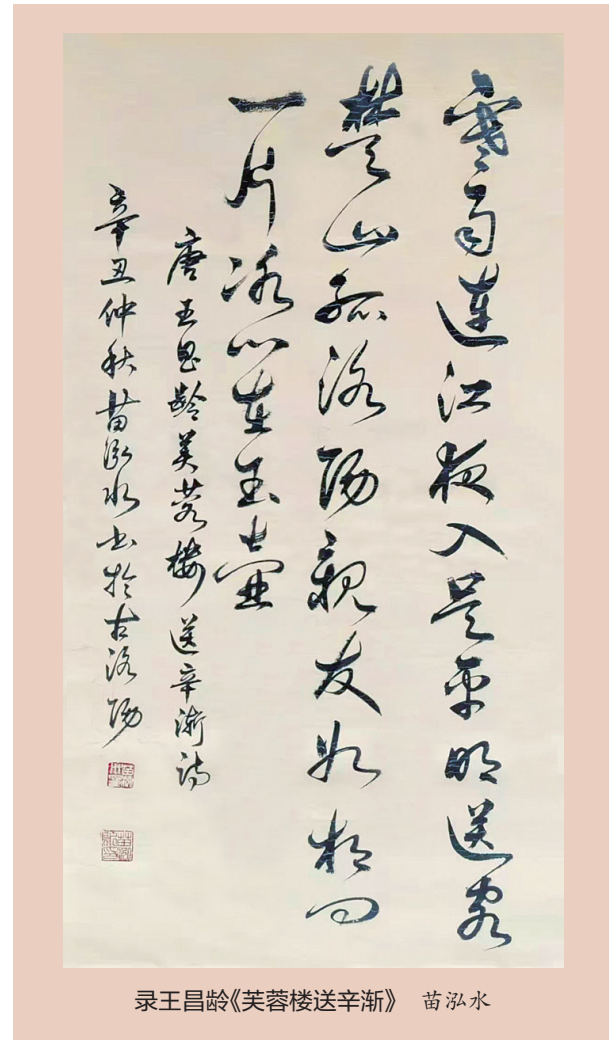 寒雨連江夜入吴平明送客
楚山孤洛陽親友如相问
一片冰心在玉壶
唐王昌齡芙蓉楼送辛渐诗
辛丑仲秋苗泓水书於古洛陽
录王昌龄《芙蓉楼送辛渐》 苗泓水